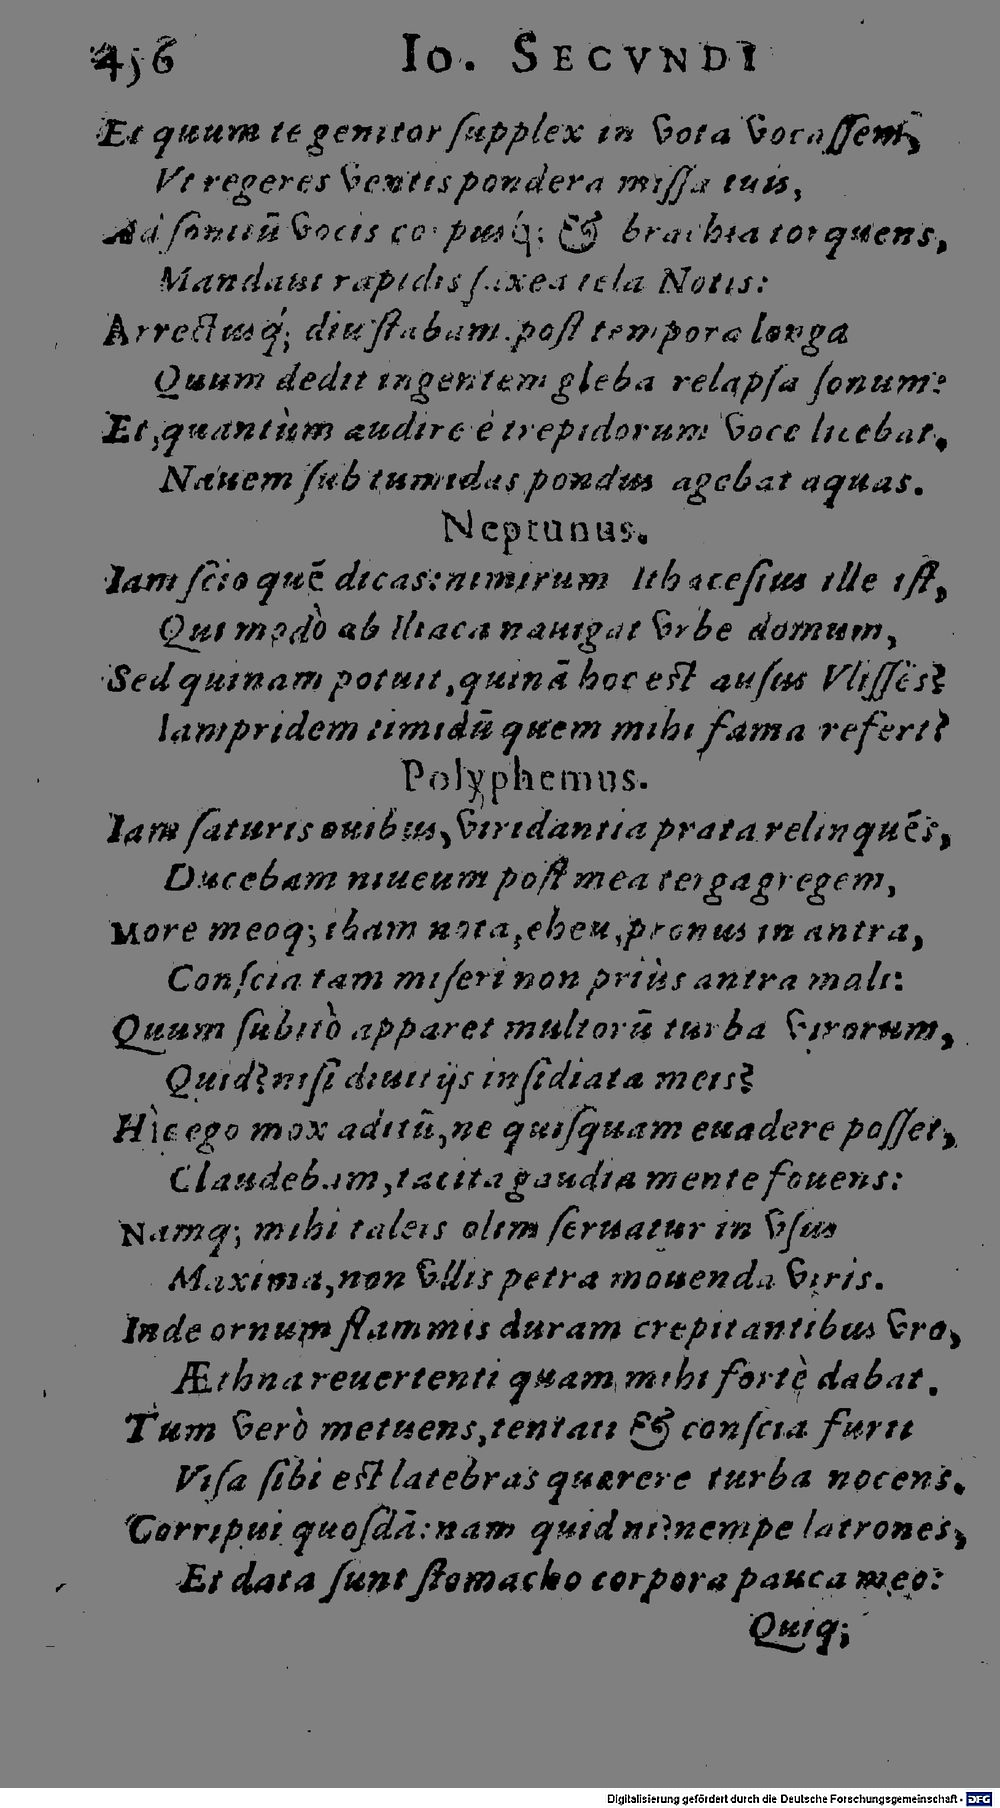 456 Io. SECVNDI
Et quum te genitor ſupplex in vota vocaſſem,
Vt regeres ventis pondera miſſa tuis,
Ad ſonitũ vocis corpusq́; & brachia torquens,
Mandaui rapidis ſaxea tela Notis:
Arrectusq́; diu ſtabam. poſt tempora longa
Quum dedit ingentem gleba relapſa ſonum:
Et, quantùm audire è trepidorum voce licebat,
Nauem ſub tumidas pondus agebat aquas.
Neptunus.
Iam ſcio quẽ dicas: nimirum Ithaceſius ille iſt,
Qui modò ab Iliaca nauigat vrbe domum,
Sed quinam potuit, quinã hoc est auſus Vliſſes?
Iampridem timidũ quem mihi fama refert?
Polyphemus.
Iam ſaturis ouibus, viridantia prata relinquẽs,
Ducebam niueum poſt mea terga gregem,
More meoq; ibam nota, eheu, pronus in antra,
Conſcia tam miſeri non priùs antra mali:
Quum ſubitò apparet multorũ turba virorum,
Quid? niſi diuitijs inſidiata meis?
Hìc ego mox aditũ, ne quiſquam euadere poſſet,
Claudebam, tacita gaudia mente fouens:
Namq; mihi taleis olim ſeruatur in vſus
Maxima, non vllis petra mouenda viris.
Inde ornum flammis duram crepitantibus vro,
Æthna reuertenti quam mihi fortè dabat.
Tum verò metuens, tentati & conſcia furti
Viſa ſibi est latebras quærere turba nocens.
Corripui quoſdã: nam quid ni? nempe latrones,
Et data ſunt ſtomacho corpora pauca meo:
Quiq;
Digitalisierung gefördert durch die Deutsche Forschungsgemeinschaft - DFG